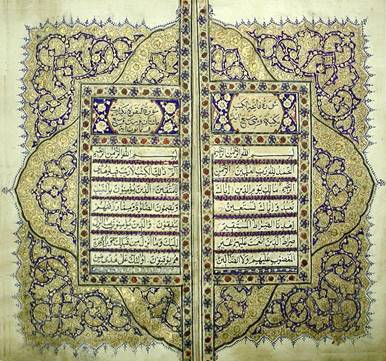 سورة فاتحة الكتاب
مكية وهي سبع
بسم الله الرحمن الرحيم
الحمد لله رب العالمين الرحمن
الرحيم مالك يوم الدين اياك
نعبد واياك نستعين
اهدنا الصراط المستقيم
صراط الذين انعمت عليهم غير
المغضوب عليهم ولا الضالين
سورة البقرة
بسم الله الرحمن الرحيم
الم ذلك الكتاب لا ريب فيه
هدى للمتقين الذين يؤمنون
بالغيب ويقيمون الصلوة ومما
رزقناهم ينفقون والذين يؤمنون بما انزل
اليك وما انزل من قبلك وبالاخرة
هم يوقنون اولئك على هدى من